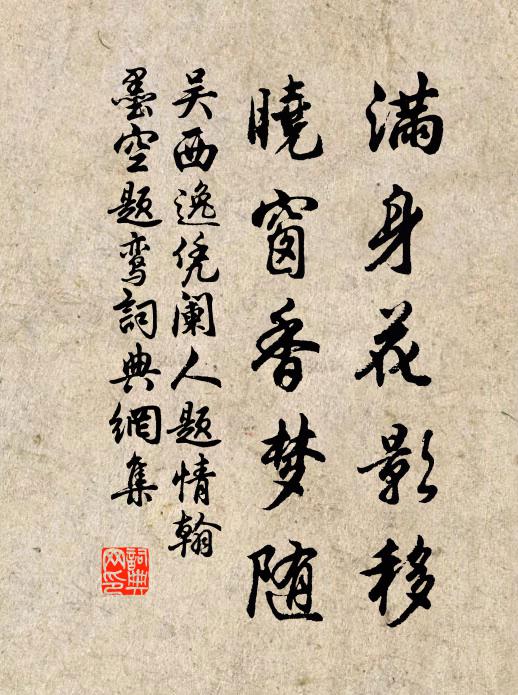 满身花影移
晓窗香梦随
吴西逸凭阑人题情翰
墨空题鸾詞典網集
詞典网印